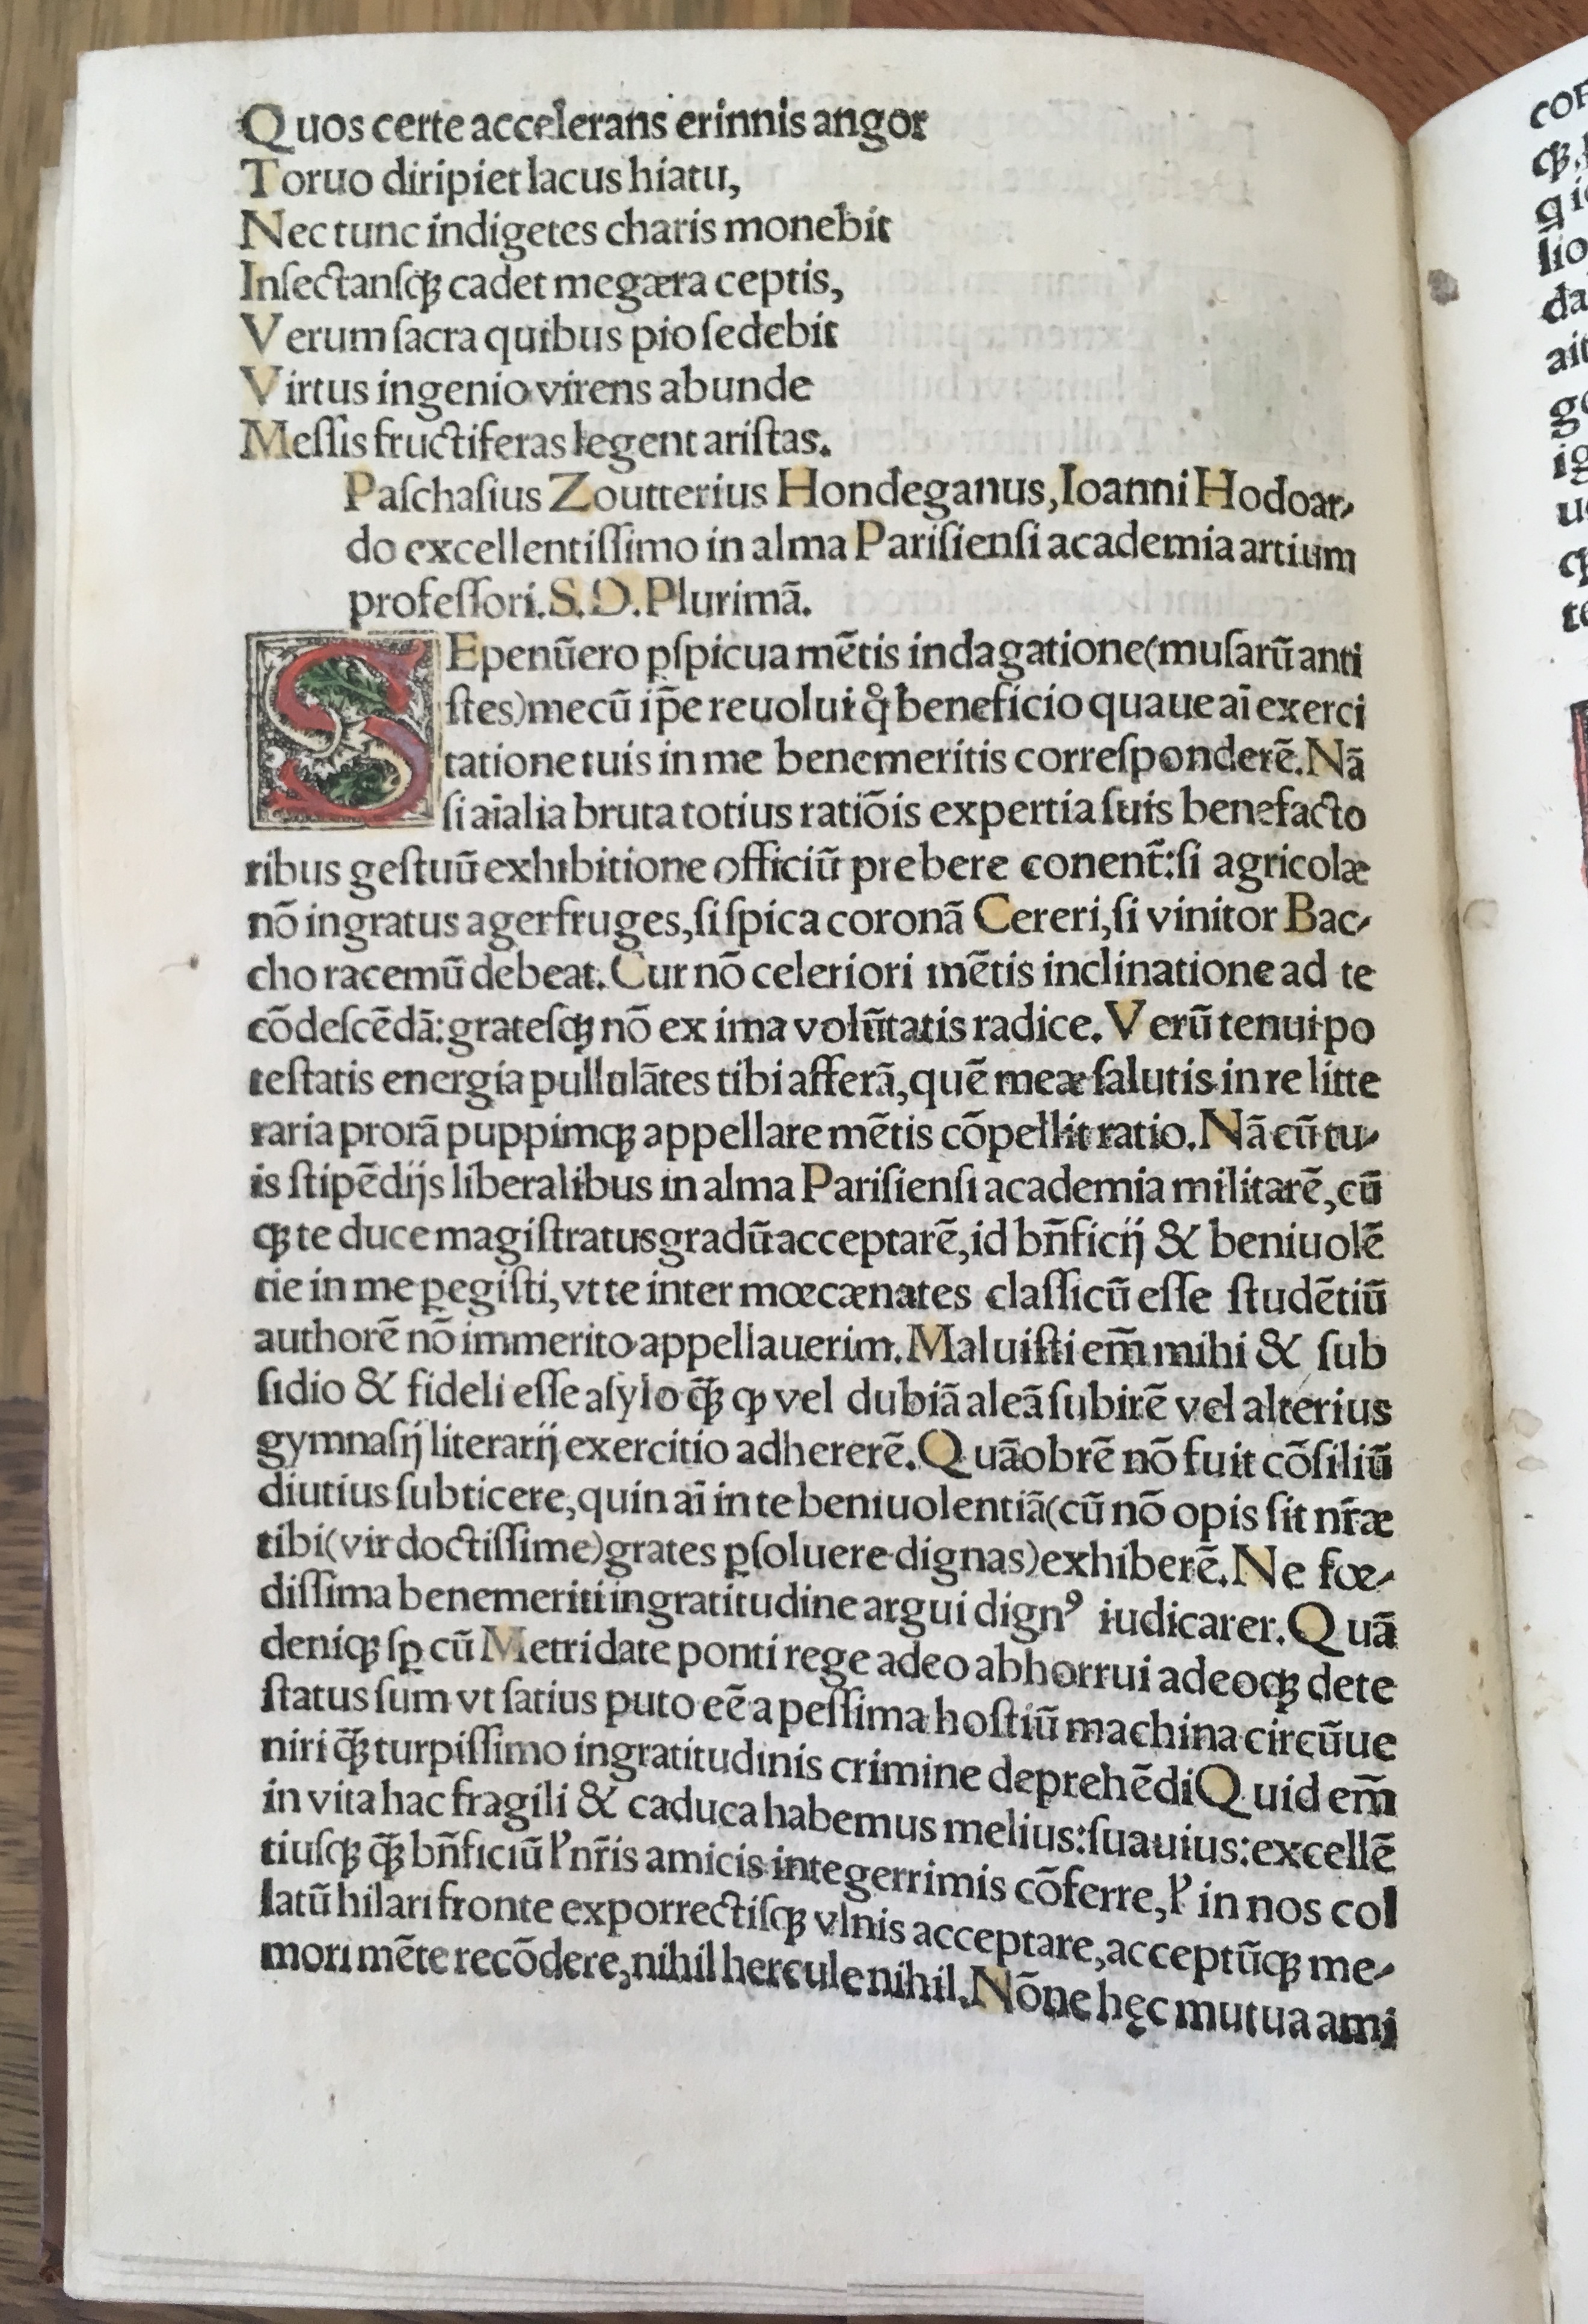 Quos certe accelerans erinnis angor
Toruo diripiet lacus hiatu,
Nec tunc indigetes charis monebit
Inſectanſqꝫ cadet megæra ceptis,
Verum ſacra quibus pio ſedebit
Virtus ingenio virens abunde
Meſſis fructiferas legent ariſtas.
Paſchaſius Zoutterius Hondeganus, Ioanni Hodoar-
do excellentiſſimo in alma Pariſienſi academia artium
profeſſori. S. D. Plurimã.
SEpenũero ꝑſpicua mẽtis indagatione (muſarũ anti
ſtes) mecũ ip̃e reuolui qͦ beneficio quaue aĩ exerci
tatione tuis in me benemeritis correſponderẽ. Nã
ſi aĩalia bruta totius ratiõis expertia ſuis benefacto
ribus geſtuũ exhibitione officiũ prebere conent̃: ſi agricolæ
nõ ingratus ager fruges, ſi ſpica coronã Cereri, ſi vinitor Bac-
cho racemũ debeat. Cur nõ celeriori mẽtis inclinatione ad te
cõdeſcẽdã: grateſqꝫ nõ ex ima volũtatis radice. Verũ tenui po
teſtatis energia pullulãtes tibi afferã, quẽ meæ ſalutis in re litte
raria prorã puppimqꝫ appellare mẽtis cõpellit ratio. Nã cũ tu-
is ſtipẽdijs liberalibus in alma Pariſienſi academia militarẽ, cũ
qꝫ te duce magiſtratus gradũ acceptarẽ, id bñficij & beniuolẽ
tie in me ꝑegiſti, vt te inter mœcænates claſſicũ eſſe ſtudẽtiũ
authorẽ nõ immerito appellauerim. Maluiſti em̃ mihi & ſub
ſidio & fideli eſſe aſylo q̃ꝫ ꝙ vel dubiã aleã ſubirẽ vel alterius
gymnaſij literarij exercitio adhererẽ. Quãobrẽ nõ fuit cõſiliũ
diutius ſubticere, quin aĩ in te beniuolentiã (cũ nõ opis ſit nr̃æ
tibi (vir doctiſſime) grates ꝑſoluere dignas) exhiberẽ. Ne fœ-
diſſima benemeriti ingratitudine argui dignꝰ iudicarer. Quã
deniqꝫ ſꝑ cũ Metridate ponti rege adeo abhorrui adeoqꝫ dete
ſtatus ſum vt ſatius puto eẽ a peſſima hoſtiũ machina circũue
niri q̃ꝫ turpiſſimo ingratitudinis crimine deprehẽdi Quid em̃
in vita hac fragili & caduca habemus melius: ſuauius: excellẽ
tiuſqꝫ q̃ꝫ bñficiũ ꝉ nr̃is amicis integerrimis cõferre, ꝉ in nos col
latũ hilari fronte exporrectiſqꝫ vlnis acceptare, acceptũqꝫ me-
mori mẽte recõdere, nihil hercule nihil. Nõne hęc mutua ami